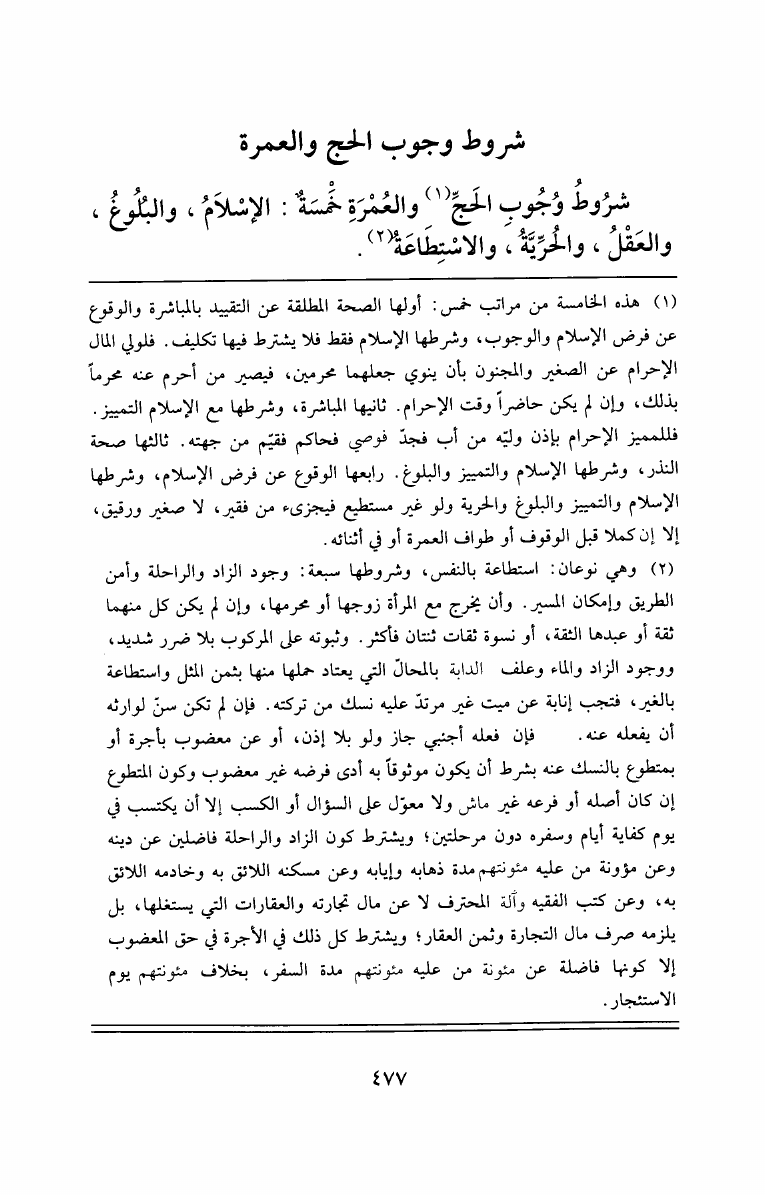 شروط وجوب الحج والعمرة
شُرُوطُ وُجُوبِ الحَجِّ(١) والعُمْرَةِ خْمسَةٌ : الإسْلَامُ ، والبُلُوغُ ،
والعَقْلُ ، والْحُرِّيَّةُ ، والاسْتِطَاعَةُ(٢) .
(١) هذه الخامسة من مراتب خمس : أولها الصحة المطلقة عن التقييد بالمباشرة والوقوع
عن فرض الإسلام والوجوب ، وشرطها الإسلام فقط فلا يشترط فيها تكليف . فلولي المال
الإحرام عن الصغير والمجنون بأن ينوي جعلهما محرمين ، فيصير من أحرم عنه محرماً
بذلك ، وإن لم يكن حاضراً وقت الإحرام . ثانيها المباشرة ، وشرطها مع الإسلام التمييز .
فللمميز الإحرام بإذن وليّه من أب فجدّ فوصي فحاكم فقيّم من جهته . ثالثها صحة
النذر ، وشرطها الإسلام والتمييز والبلوغ . رابعها الوقوع عن فرض الإسلام ، وشرطها
الإسلام والتمييز والبلوغ والحرية ولو غير مستطيع فيجزىء من فقير ، لا صغير ورقيق ،
إلا إن كملا قبل الوقوف أو طواف العمرة أو في أثنائه .
(٢) وهي نوعان : استطاعة بالنفس ، وشروطها سبعة : وجود الزاد والراحلة وأمن
الطريق وإمكان المسير . وأن يخرج مع المرأة زوجها أو محرمها ، وإن لم يكن كل منهما
ثقة أو عبدها الثقة ، أو نسوة ثقات ثنتان فأكثر . وثبوته على المركوب بلا ضرر شديد ،
ووجود الزاد والماء وعلف الدابة بالمحالّ التي يعتاد حملها منها بثمن المثل واستطاعة
بالغير ، فتجب إنابة عن ميت غير مرتدّ عليه نسك من تركته . فإن لم تكن سنّ لوارثه
أن يفعله عنه . فإن فعله أجنبي جاز ولو بلا إذن ، أو عن معضوب بأجرة أو
بمتطوع بالنسك عنه بشرط أن يكون موثوقاً به أدى فرضه غير معضوب وكون المتطوع
إن كان أصله أو فرعه غير ماش ولا معوّل على السؤال أو الكسب إلا أن يكتسب في
يوم كفاية أيام وسفره دون مرحلتين ؛ ويشترط كون الزاد والراحلة فاضلين عن دينه
وعن مؤونة من عليه مئونتهم مدة ذهابه وإيابه وعن مسكنه اللائق به وخادمه اللائق
به ، وعن كتب الفقيه وآلة المحترف لا عن مال تجارته والعقارات التي يستغلها ، بل
يلزمه صرف مال التجارة وثمن العقار ؛ ويشترط كل ذلك في الأجرة في حق المعضوب
إلا كونها فاضلة عن مئونة من عليه مئونتهم مدة السفر ، بخلاف مئونتهم يوم
الاستئجار .
٤٧٧